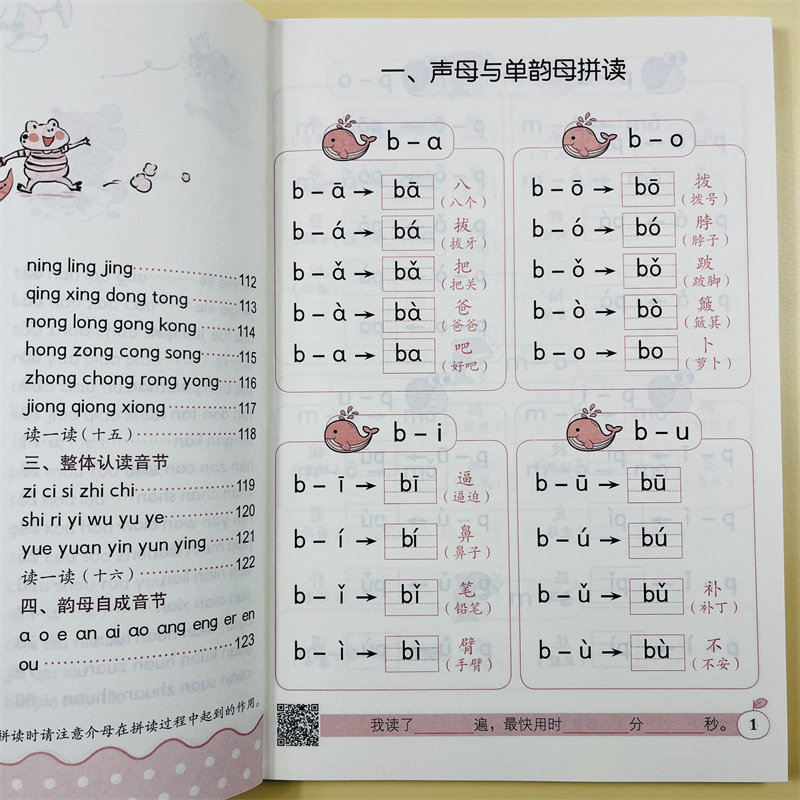 ning ling jing 112
qing xing dong tong 113
nong long gong kong 114
hong zong cong song 115
zhong chong rong yong 116
jiong qiong xiong 117
读一读(十五) 118
三、整体认读音节
zi ci si zhi chi 119
shi ri yi wu yu ye 120
yue yuan yin yun ying 121
读一读(十六) 122
四、韵母自成音节
ɑ o e an ai ao ang eng er en
ou 123
拼读时请注意介母在拼读过程中起到的作用。
一、声母与单韵母拼读
b – ɑ
b – ā → bā 八 (八个)
b – á → bá 拔 (拔牙)
b – ǎ → bǎ 把 (把关)
b – à → bà 爸 (爸爸)
b – ɑ → bɑ 吧 (好吧)
b – o
b – ō → bō 拨 (拨号)
b – ó → bó 脖 (脖子)
b – ǒ → bǒ 跛 (跛脚)
b – ò → bò 簸 (簸箕)
b – o → bo 卜 (萝卜)
b – i
b – ī → bī 逼 (逼迫)
b – í → bí 鼻 (鼻子)
b – ǐ → bǐ 笔 (铅笔)
b – ì → bì 臂 (手臂)
b – u
b – ū → bū
b – ú → bú
b – ǔ → bǔ 补 (补丁)
b – ù → bù 不 (不安)
我读了 遍，最快用时 分 秒。 1